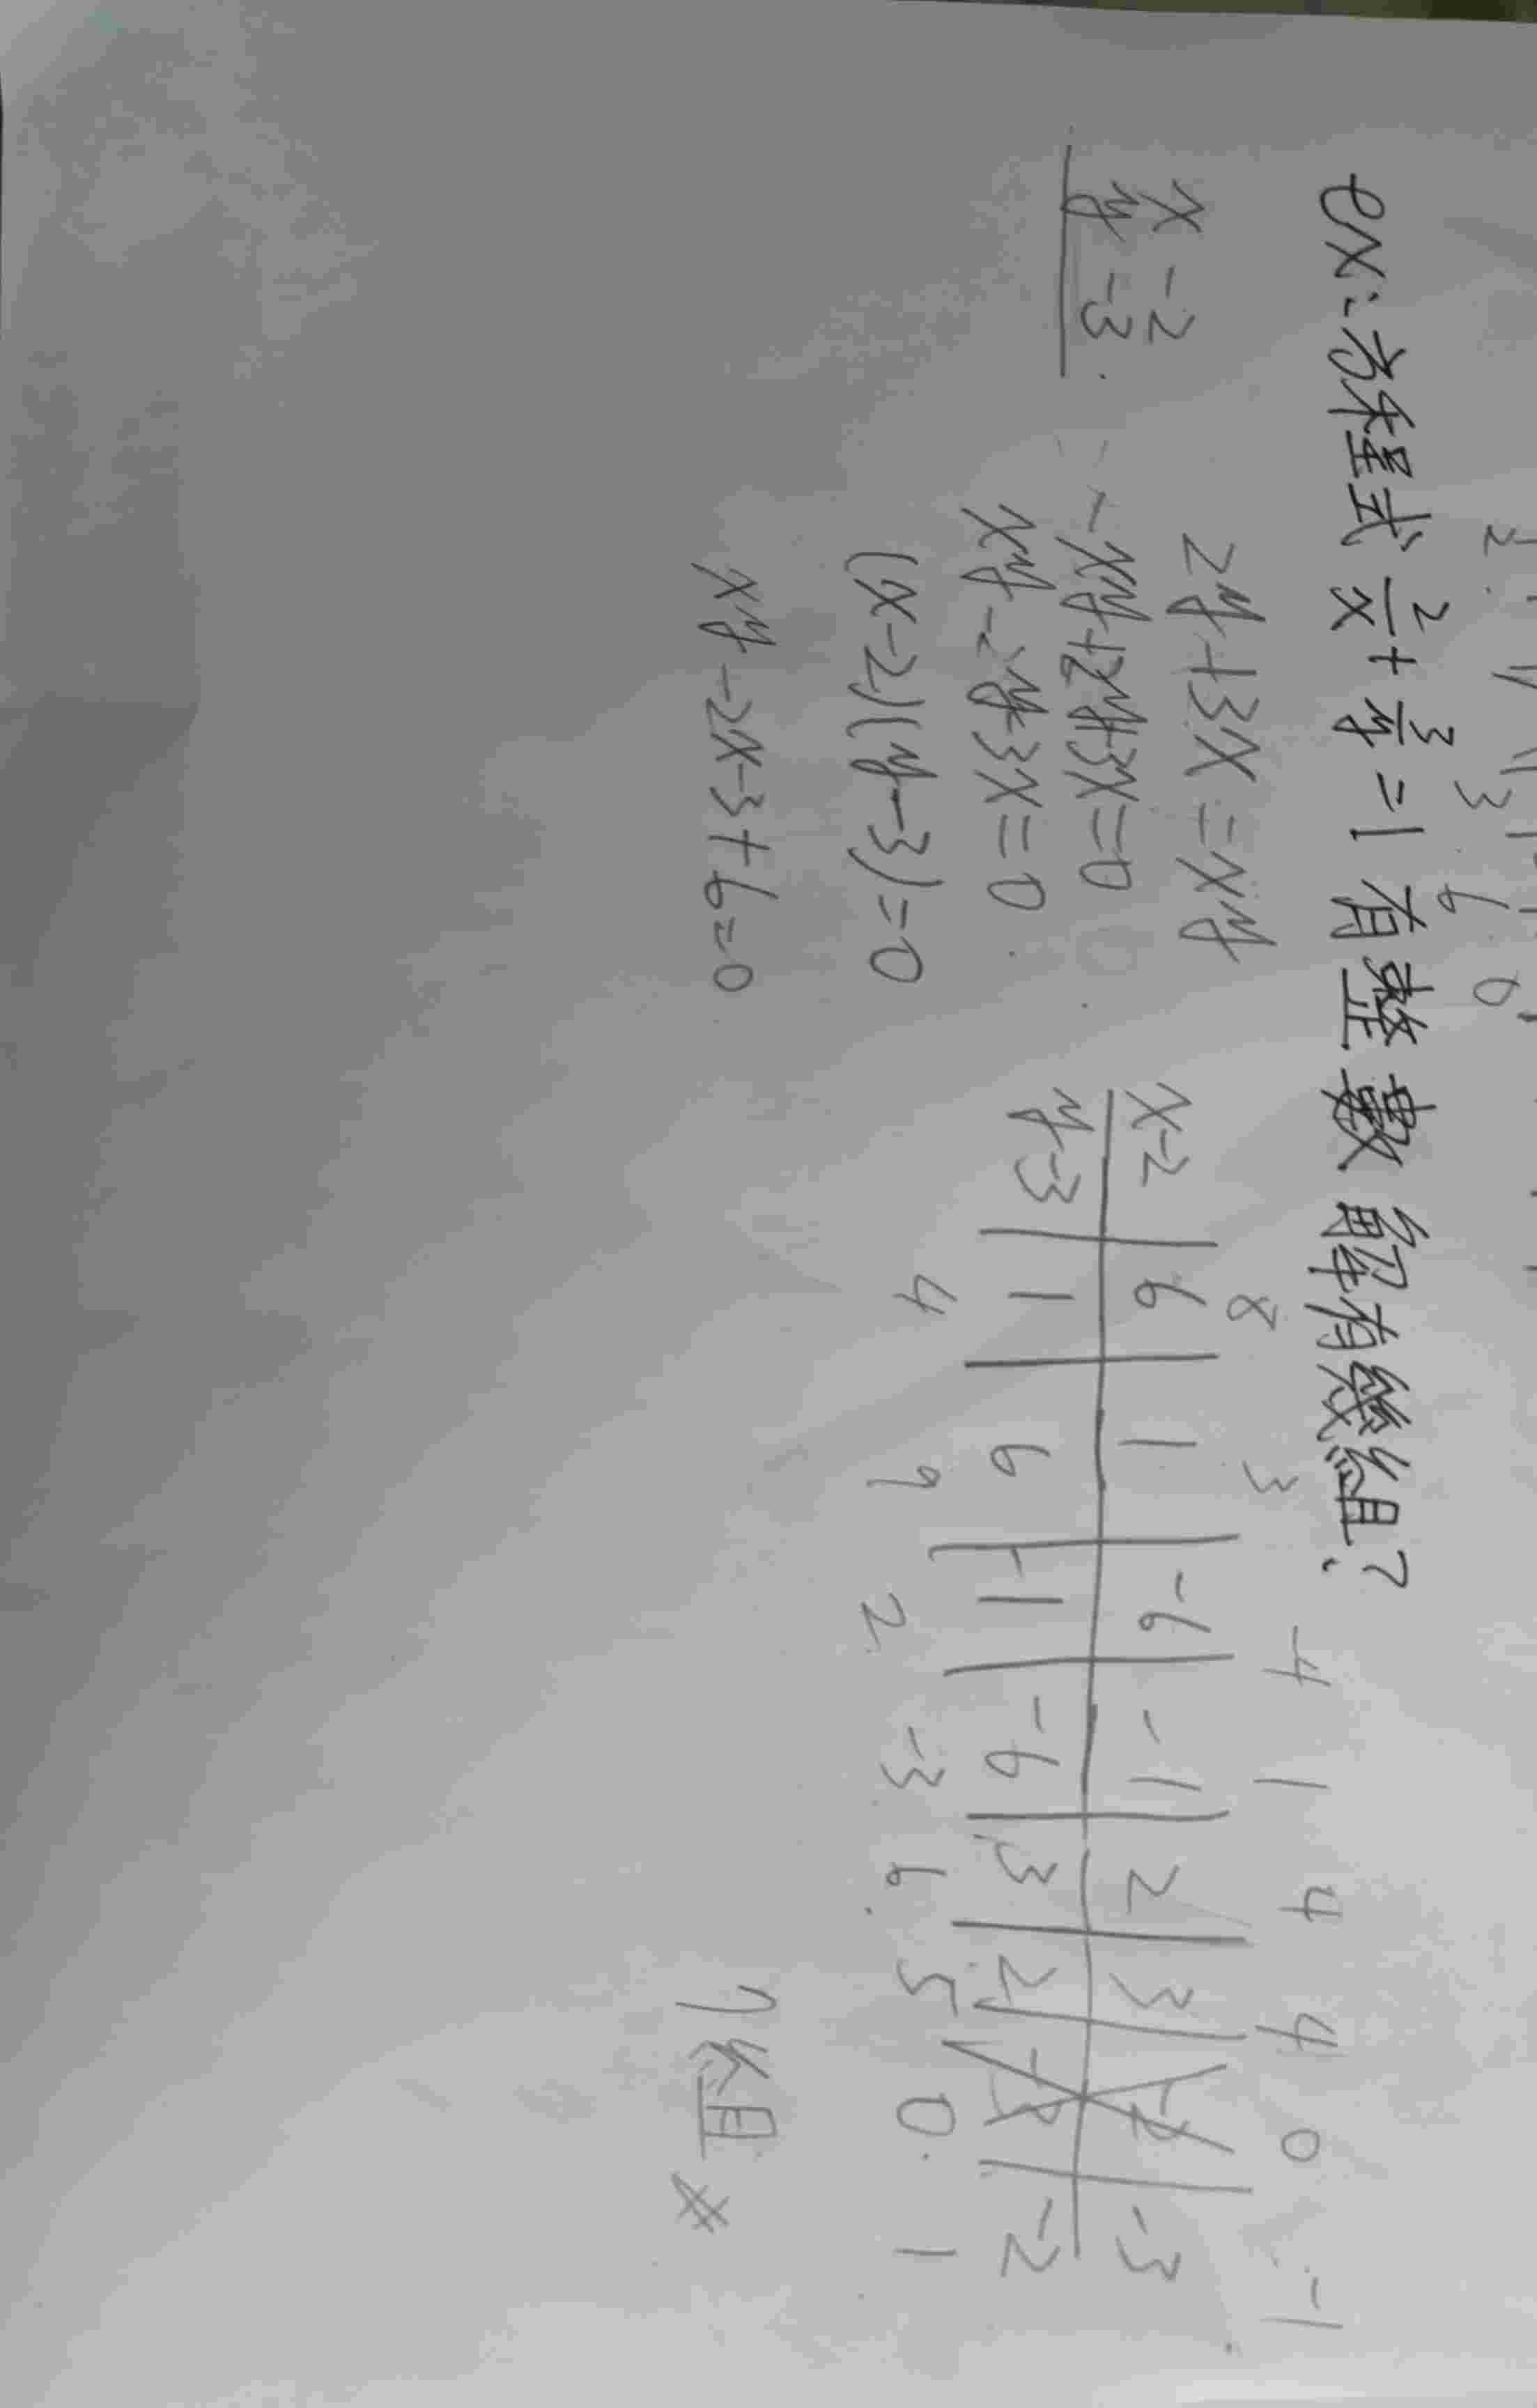 ex:方程式 2/x + 3/y = 1 有整數解有幾組?
x -2
y -3
2y+3x=xy
-xy+2y+3x=0
xy-2y-3x=0
(x-2)(y-3)=0
xy-2x-3+6=0
8 3 -4 1 4 4 0 -1
x-2 | 6 | 1 | -6 | -1 | 2 | 3 | -2 | -3
y-3 | 1 | 6 | -1 | -6 | 3 | 2 | -3 | -2
4 9 2 -3 6 5 0 1
7組 #